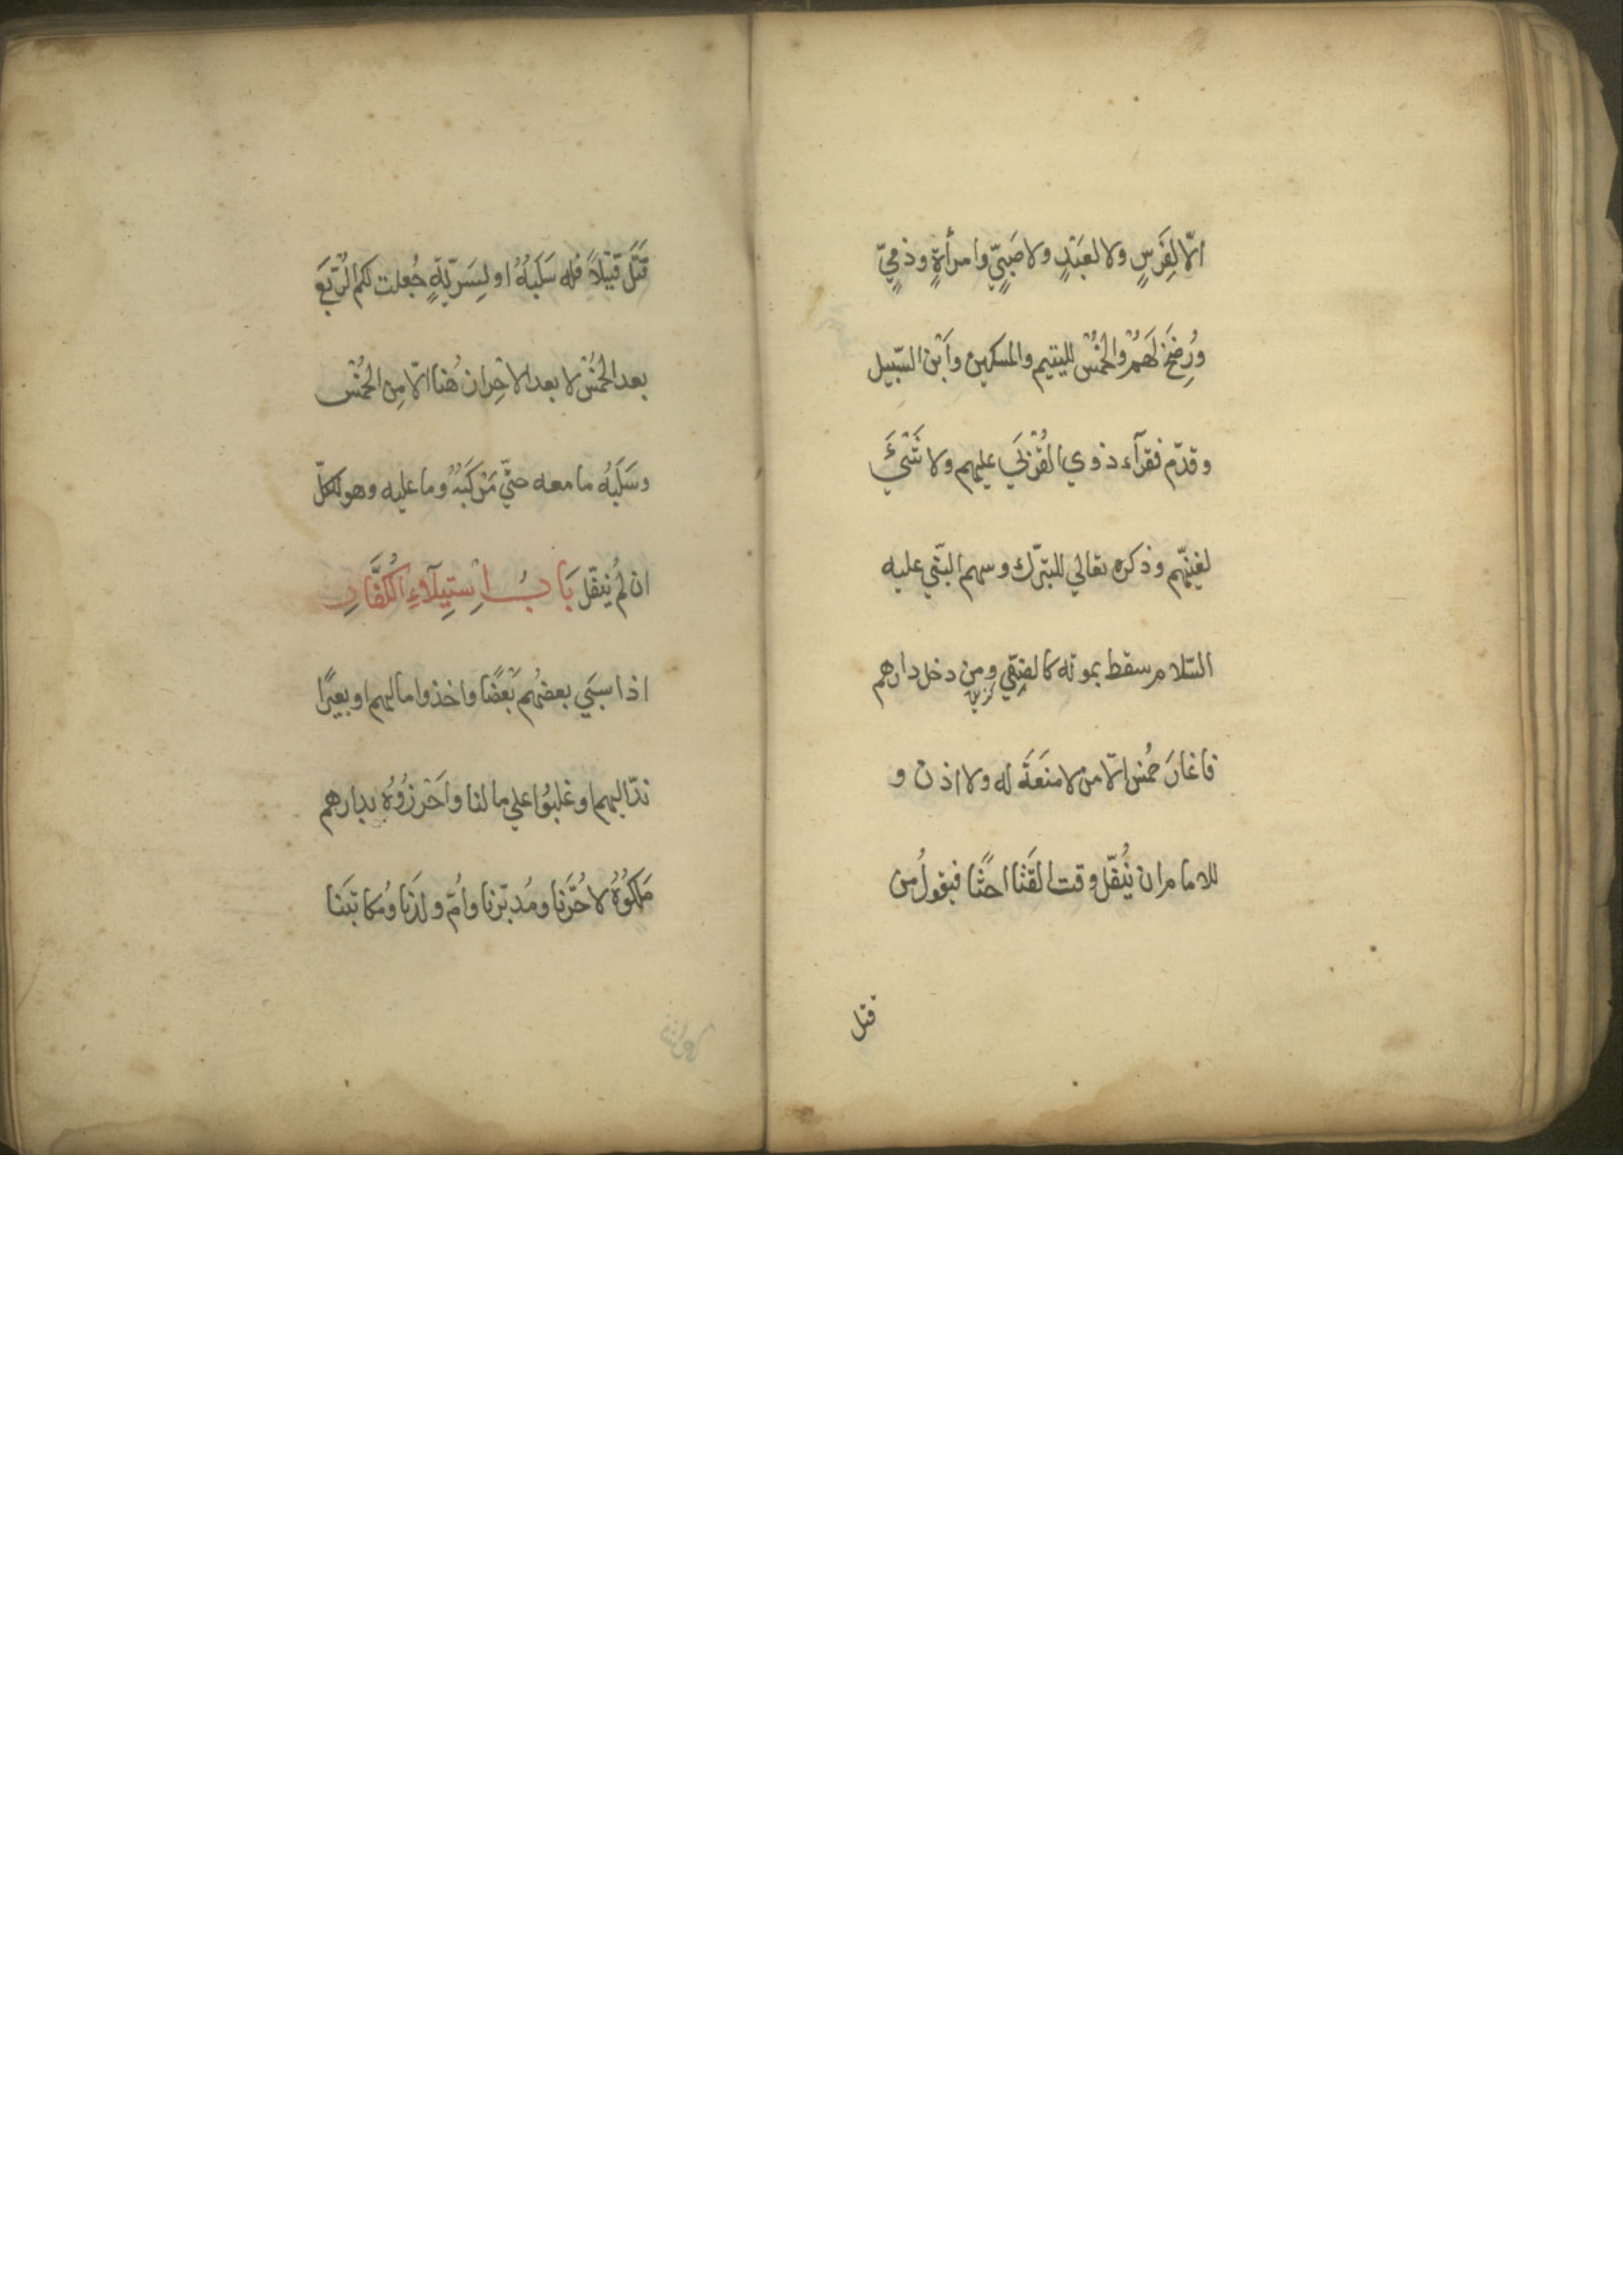 الّا لِفَرَسٍ ولا لعَبْدٍ ولا صَبِيٍّ وامرأةٍ وذميٍّ
ورُضِخَ لَهُمْ والخُمْسُ لليتيم والمسكين وابْن السّبيل
وقدّم فقرآء ذوي القُرْبَي عليهم ولا شَيْئَ
لغنيّهم وذكره تعالي للتبرّك وسهم النّبي عليه
السّلام سقط بموته كالصَّفِيّ ومن دخل دارهم
فاغارَ خُمِسَ الّا من لا مَنَعَةَ له ولا اذن و
للامام ان يُنَفِّل وقت القتال حَثًّا فيقولُ من
قتل
قَتَلَ قَتِيْلاً فله سَلَبُهُ او لِسَرِيّةٍ جُعلت لكم الرُّبْعَ
بعد الخُمْس لا بعد الاحْراز هُنا الّا مِن الخُمْس
وسَلَبُه ما معه حتّي مَرْكَبُهُ وما عليه وهو للكلّ
ان لم يُنَفَّل بَابُ اسْتِيلَآءِ الْكُفَّارِ
اذا سبَي بعضُهم بَعْضًا واخذوا مالهم او بعيرًا
ندّ اليهم او غلبُوا علي مالنا واَحْرَزُوْهُ بدارهم
مَلَكُوْهُ لا حُرَّنا ومُدبَّرنا وامّ ولَدنا ومُكاتَبَنا